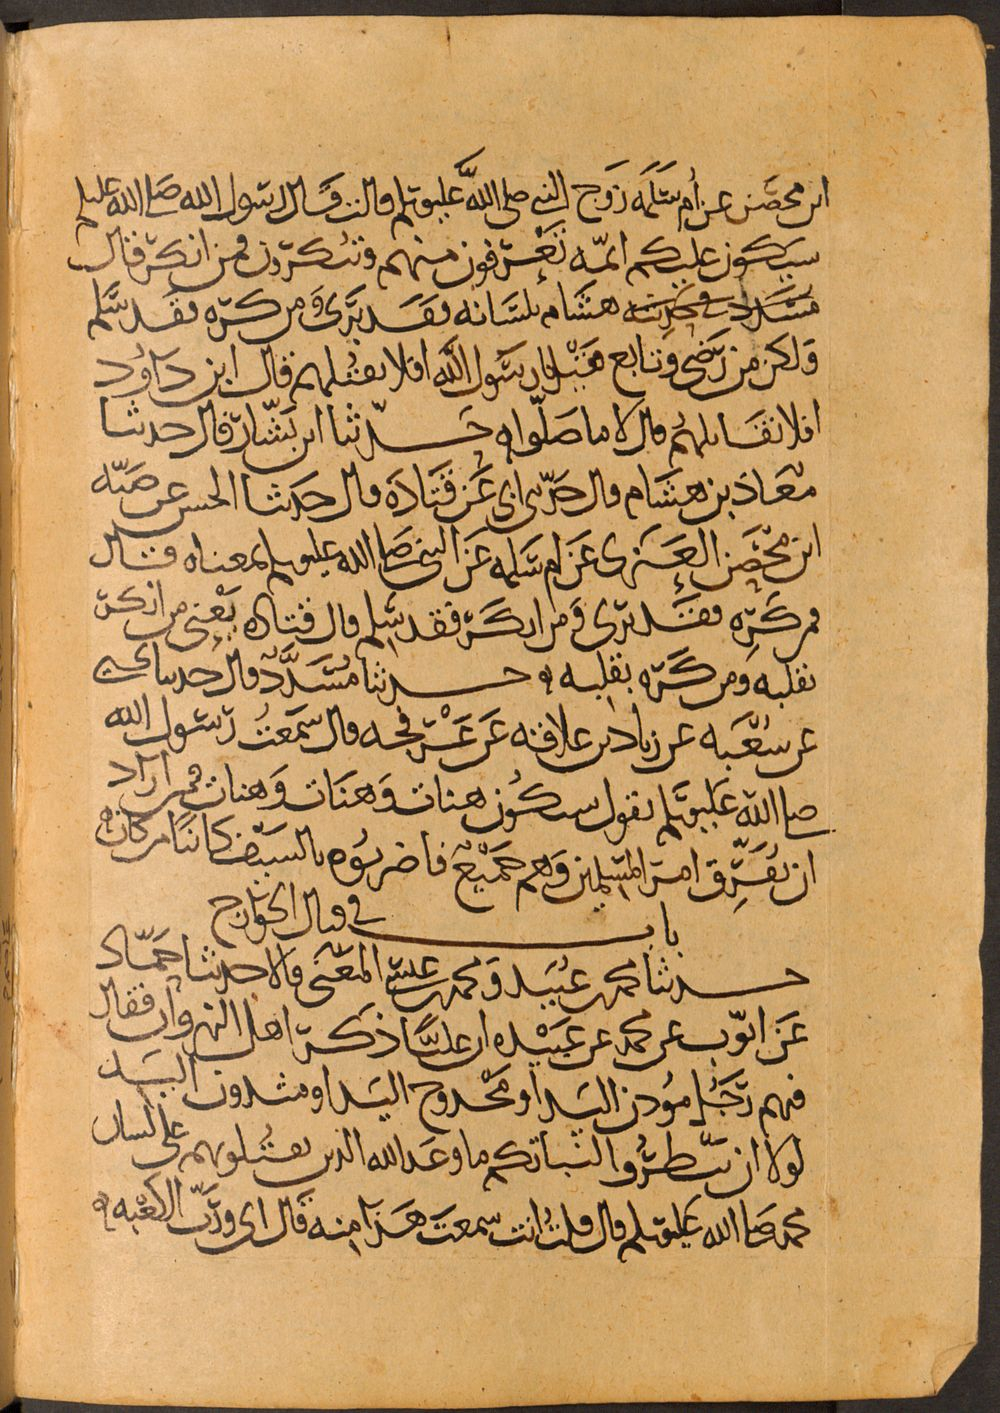 ابن محصن عن أم سلمة زوج النبي صلى الله عليه وسلم قالت قال رسول الله صلى الله عليه وسلم
سيكون عليكم ائمه تعرفون منهم وتنكرون فمن انكر قال
مسدد في حديثه هشام بلسانه فقد بري ومن كره فقد سلم
ولكن من رضي وتابع فقيل يا رسول الله افلا نقتلهم قال ابن داود
افلا نقاتلهم قال لا ما صلوا ه حدثنا ابن بشار قال حدثنا
معاذ بن هشام قال حدثني ابي عن قتادة قال حدثنا الحسن عن ضبه
ابن محصن العنزي عن ام سلمه عن النبي صلى الله عليه وسلم بمعناه قال
فمن كره فقد بري ومن انكر فقد سلم قال قتاده يعني من انكر
بقلبه ومن كره بقلبه ه حدثنا مسدد قال حدثنا يحيى
عن شعبه عن زياد بن علاقه عن عرفجه قال سمعت رسول الله
صلى الله عليه وسلم يقول ستكون هنات وهنات وهنات فمن اراد
ان يفرق امر المسلمين وهم جميع فاضربوه بالسيف كائنا من كان ه
باب في قتال الخوارج
حدثنا محمد بن عبيد ومحمد بن عيسى المعنى قالا حدثنا حماد
عن ايوب عن محمد عن عبيده ان عليا ذكر اهل النهروان فقال
فيهم رجل مودن اليد او مخدوج اليد او مثدون اليد
لولا ان تبطروا لنباتكم ما وعد الله الذين يقتلونهم على لسان
محمد صلى الله عليه وسلم قال قلت انت سمعت هذا منه قال اي ورب الكعبه ه